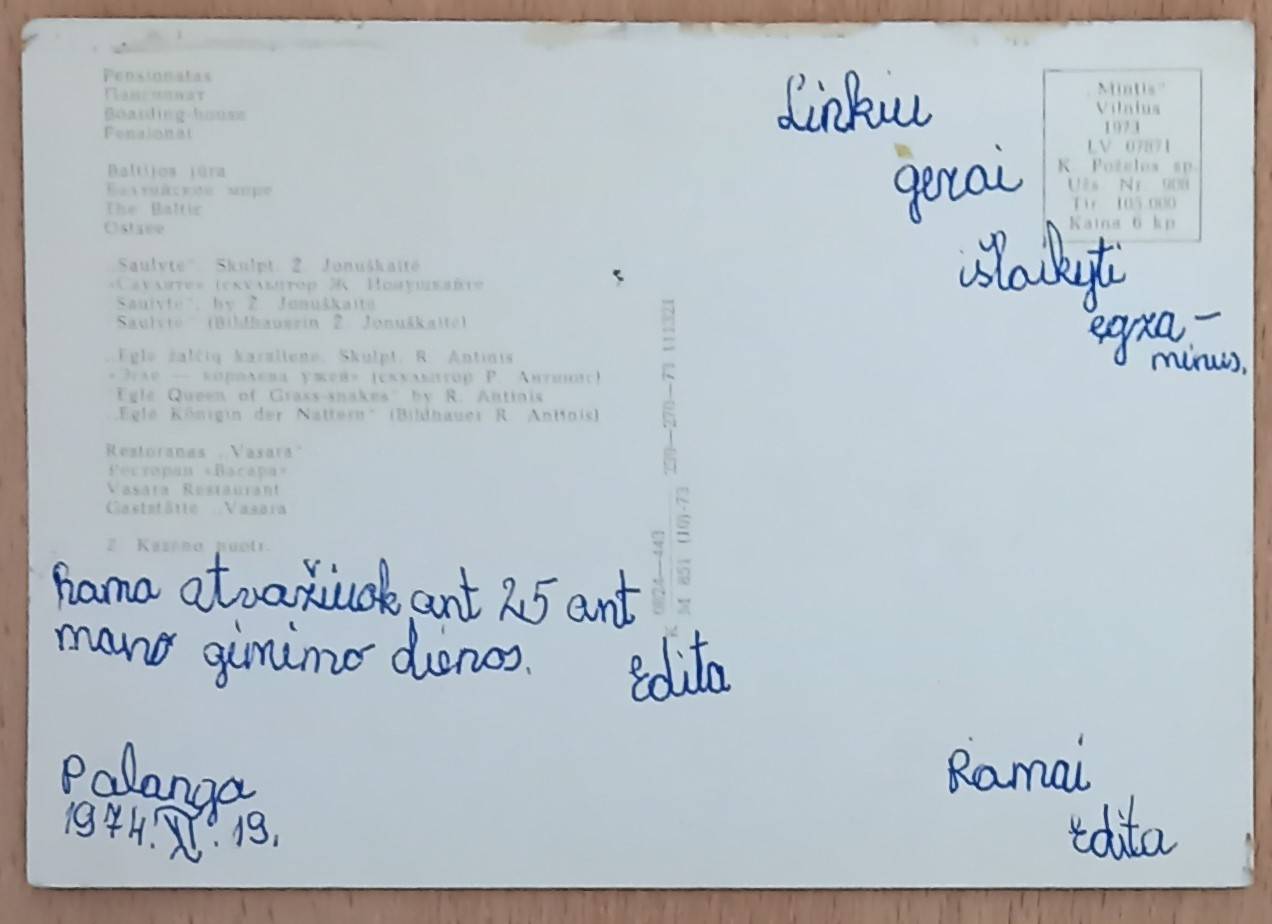 Pensionatas
Пансионат
Boarding-house
Pensionat
Baltijos jūra
Балтийское море
The Baltic
Ostsee
„Saulytė“. Skulpt. Ž. Jonuškaitė
«Саулите» (скульптор Ж. Йонушкайте
“Saulytė”, by Ž. Jonuškaitė
„Saulytė“ (Bildhauerin Ž. Jonuškaitė)
„Eglė žalčių karalienė. Skulpt. R. Antinis
«Эгле — королева ужей» (скульптор Р. Антинис)
“Eglė Queen of Grass-snakes” by R. Antinis
„Eglė Königin der Nattern“ (Bildhauer R. Antinis)
Restoranas „Vasara“
Ресторан «Васара»
Vasara Restaurant
Gaststätte „Vasara
Ž. Kazėno nuotr.
Rama atvažiuok ant 25 ant
mano gimimo dienos.
Edita
Palanga
1974.XI.19.
K 0824—443
M 851 (10)-73 270—270—73 111321
Linkiu
gerai
išlaikyti
egza-
minus.
„Mintis“
Vilnius
1973
LV 07871
K. Poželos sp.
Užs. Nr. 908
Tir. 105.000
Kaina 6 kp
Ramai
Edita